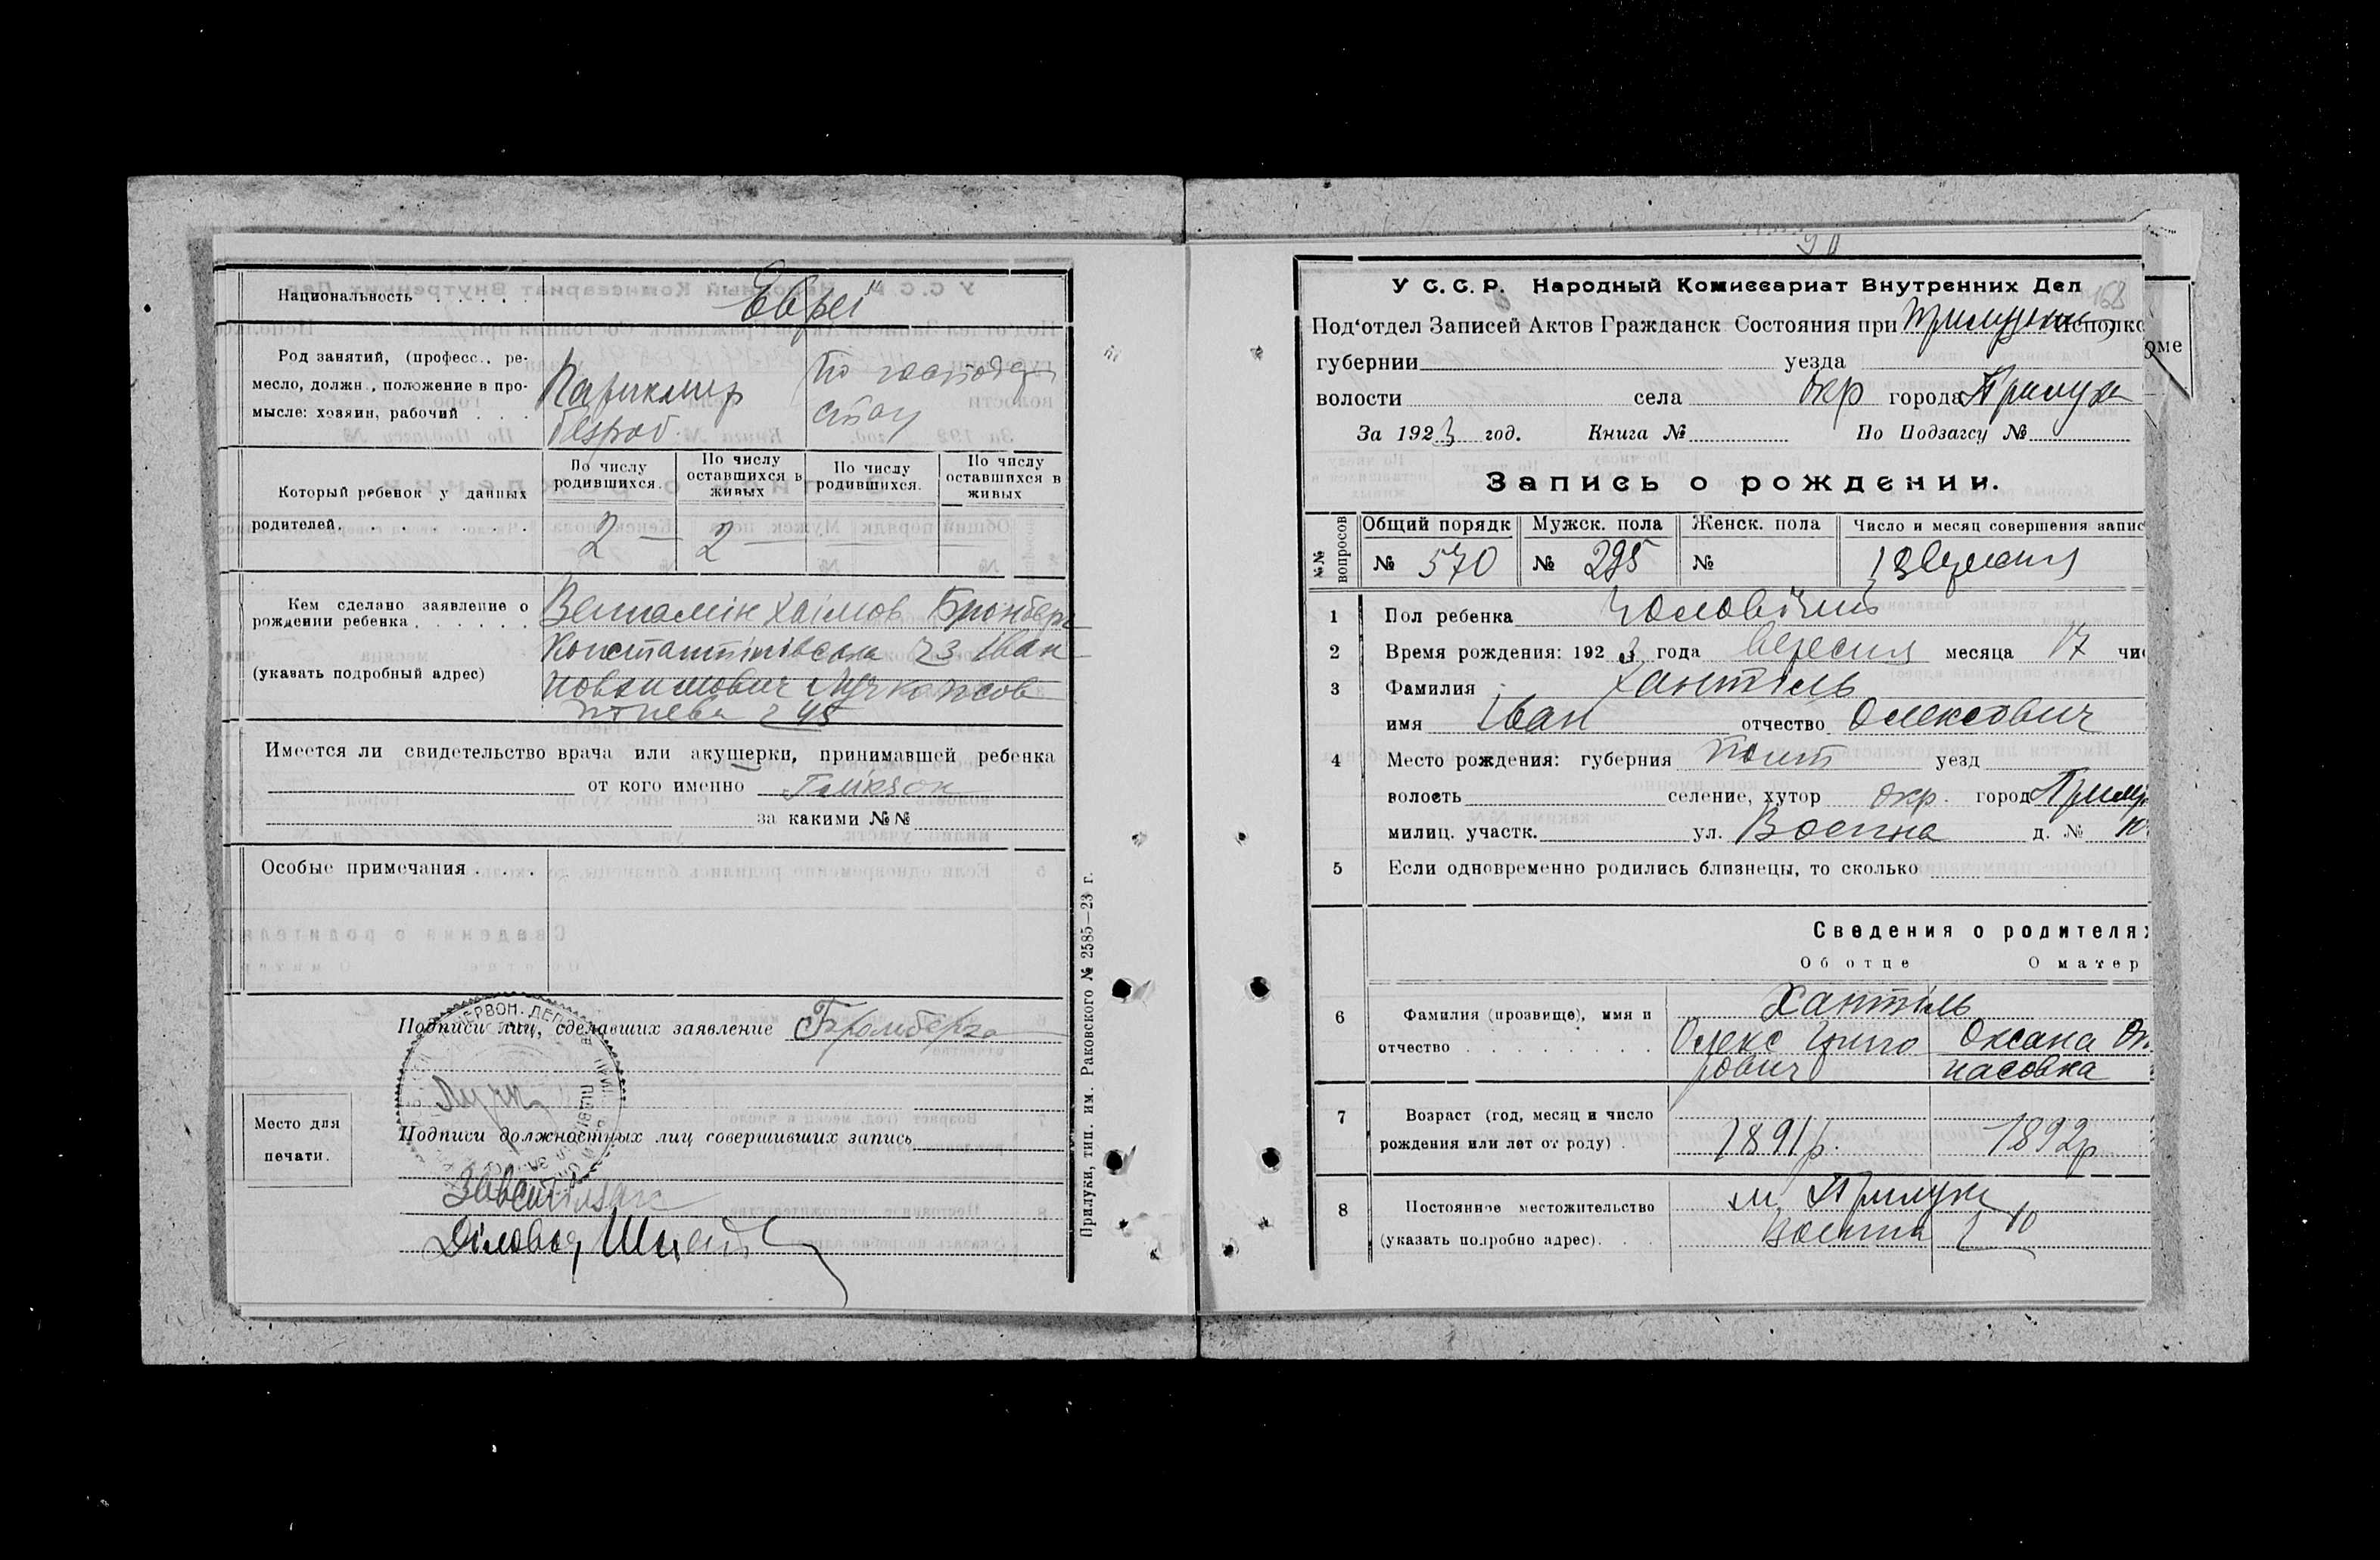 Национальность . . . . .
Евреї
Род занятий, (професс., ре-
месло, должн., положение в про-
мысле: хозяин, рабочий . . .
Парикмир
безроб.
По господар
стоу
Который ребенок у данных
родителей. . . . . . . .
По числу родившихся.
По числу оставшихся в живых
По числу родившихся.
По числу оставшихся в живых
2 — 2 —
Кем сделано заявление о
рождении ребенка . . . . . .
(указать подробный адрес)
Хаімов Бромберг
Константінівська 23 Іван
Имеется ли свидетельство врача или акушерки, принимавшей ребенка
от кого именно Глікзон
за какими №№
Особые примечания . . . .
Подписи лиц, сделавших заявление Бромберг
Место для
печати.
Подписи должностных лиц совершивших запись
Діловод
Прилуки, тип. им. Раковского № 2585—23 г.
168
У С.С.Р. Народный Комиссариат Внутренних Дел
Под'отдел Записей Актов Гражданск Состояния при Прилуцком Исполко
оме
губернии уезда
волости села окр города Прилуки
За 1923 год. Книга № По Подзагсу №
Запись о рождении.
№№ вопросов
Общий порядк Мужск. пола Женск. пола Число и месяц совершения запис
№ 570 № 295 №
1 Пол ребенка Чоловічий
2 Время рождения: 1923 года вересня месяца 17 чи
3 Фамилия Хантіль
имя Іван отчество Олексович
4 Место рождения: губерния Полт уезд
волость селение, хутор окр. город Прилу
милиц. участк. ул. Воєнна д. № 10
5 Если одновременно родились близнецы, то сколько
Сведения о родителях
Об отце О матер
6 Фамилия (прозвище), имя и
отчество . . . . . . . .
Хантіль
Олекс Григо
рович
Оксана Оп
насовна
7 Возраст (год, месяц и число
рождения или лет от роду) .
1891р. 1892р
8 Постоянное местожительство
(указать подробно адрес). . .
м. Прилуки
Воєнна 10